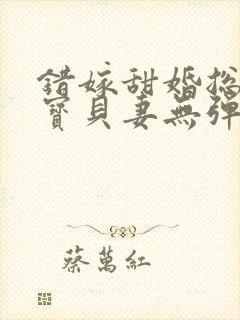 錯嫁甜婚总
寶貝妻無彈
蔡萬紅